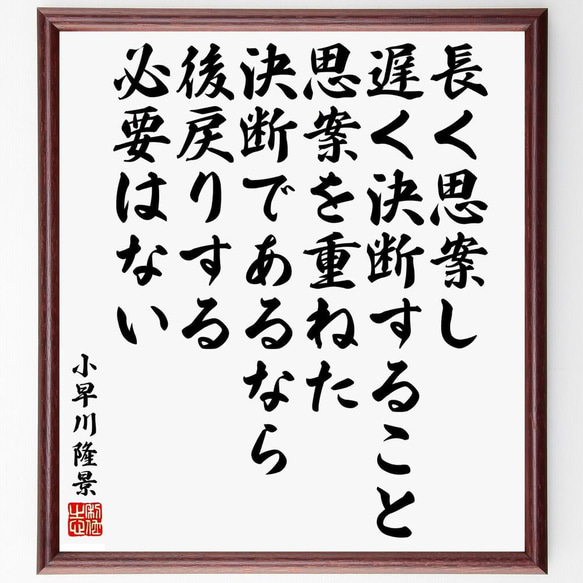 長く思案し
遅く決断すること
思案を重ねた
決断であるなら
後戻りする
必要はない
小早川隆景